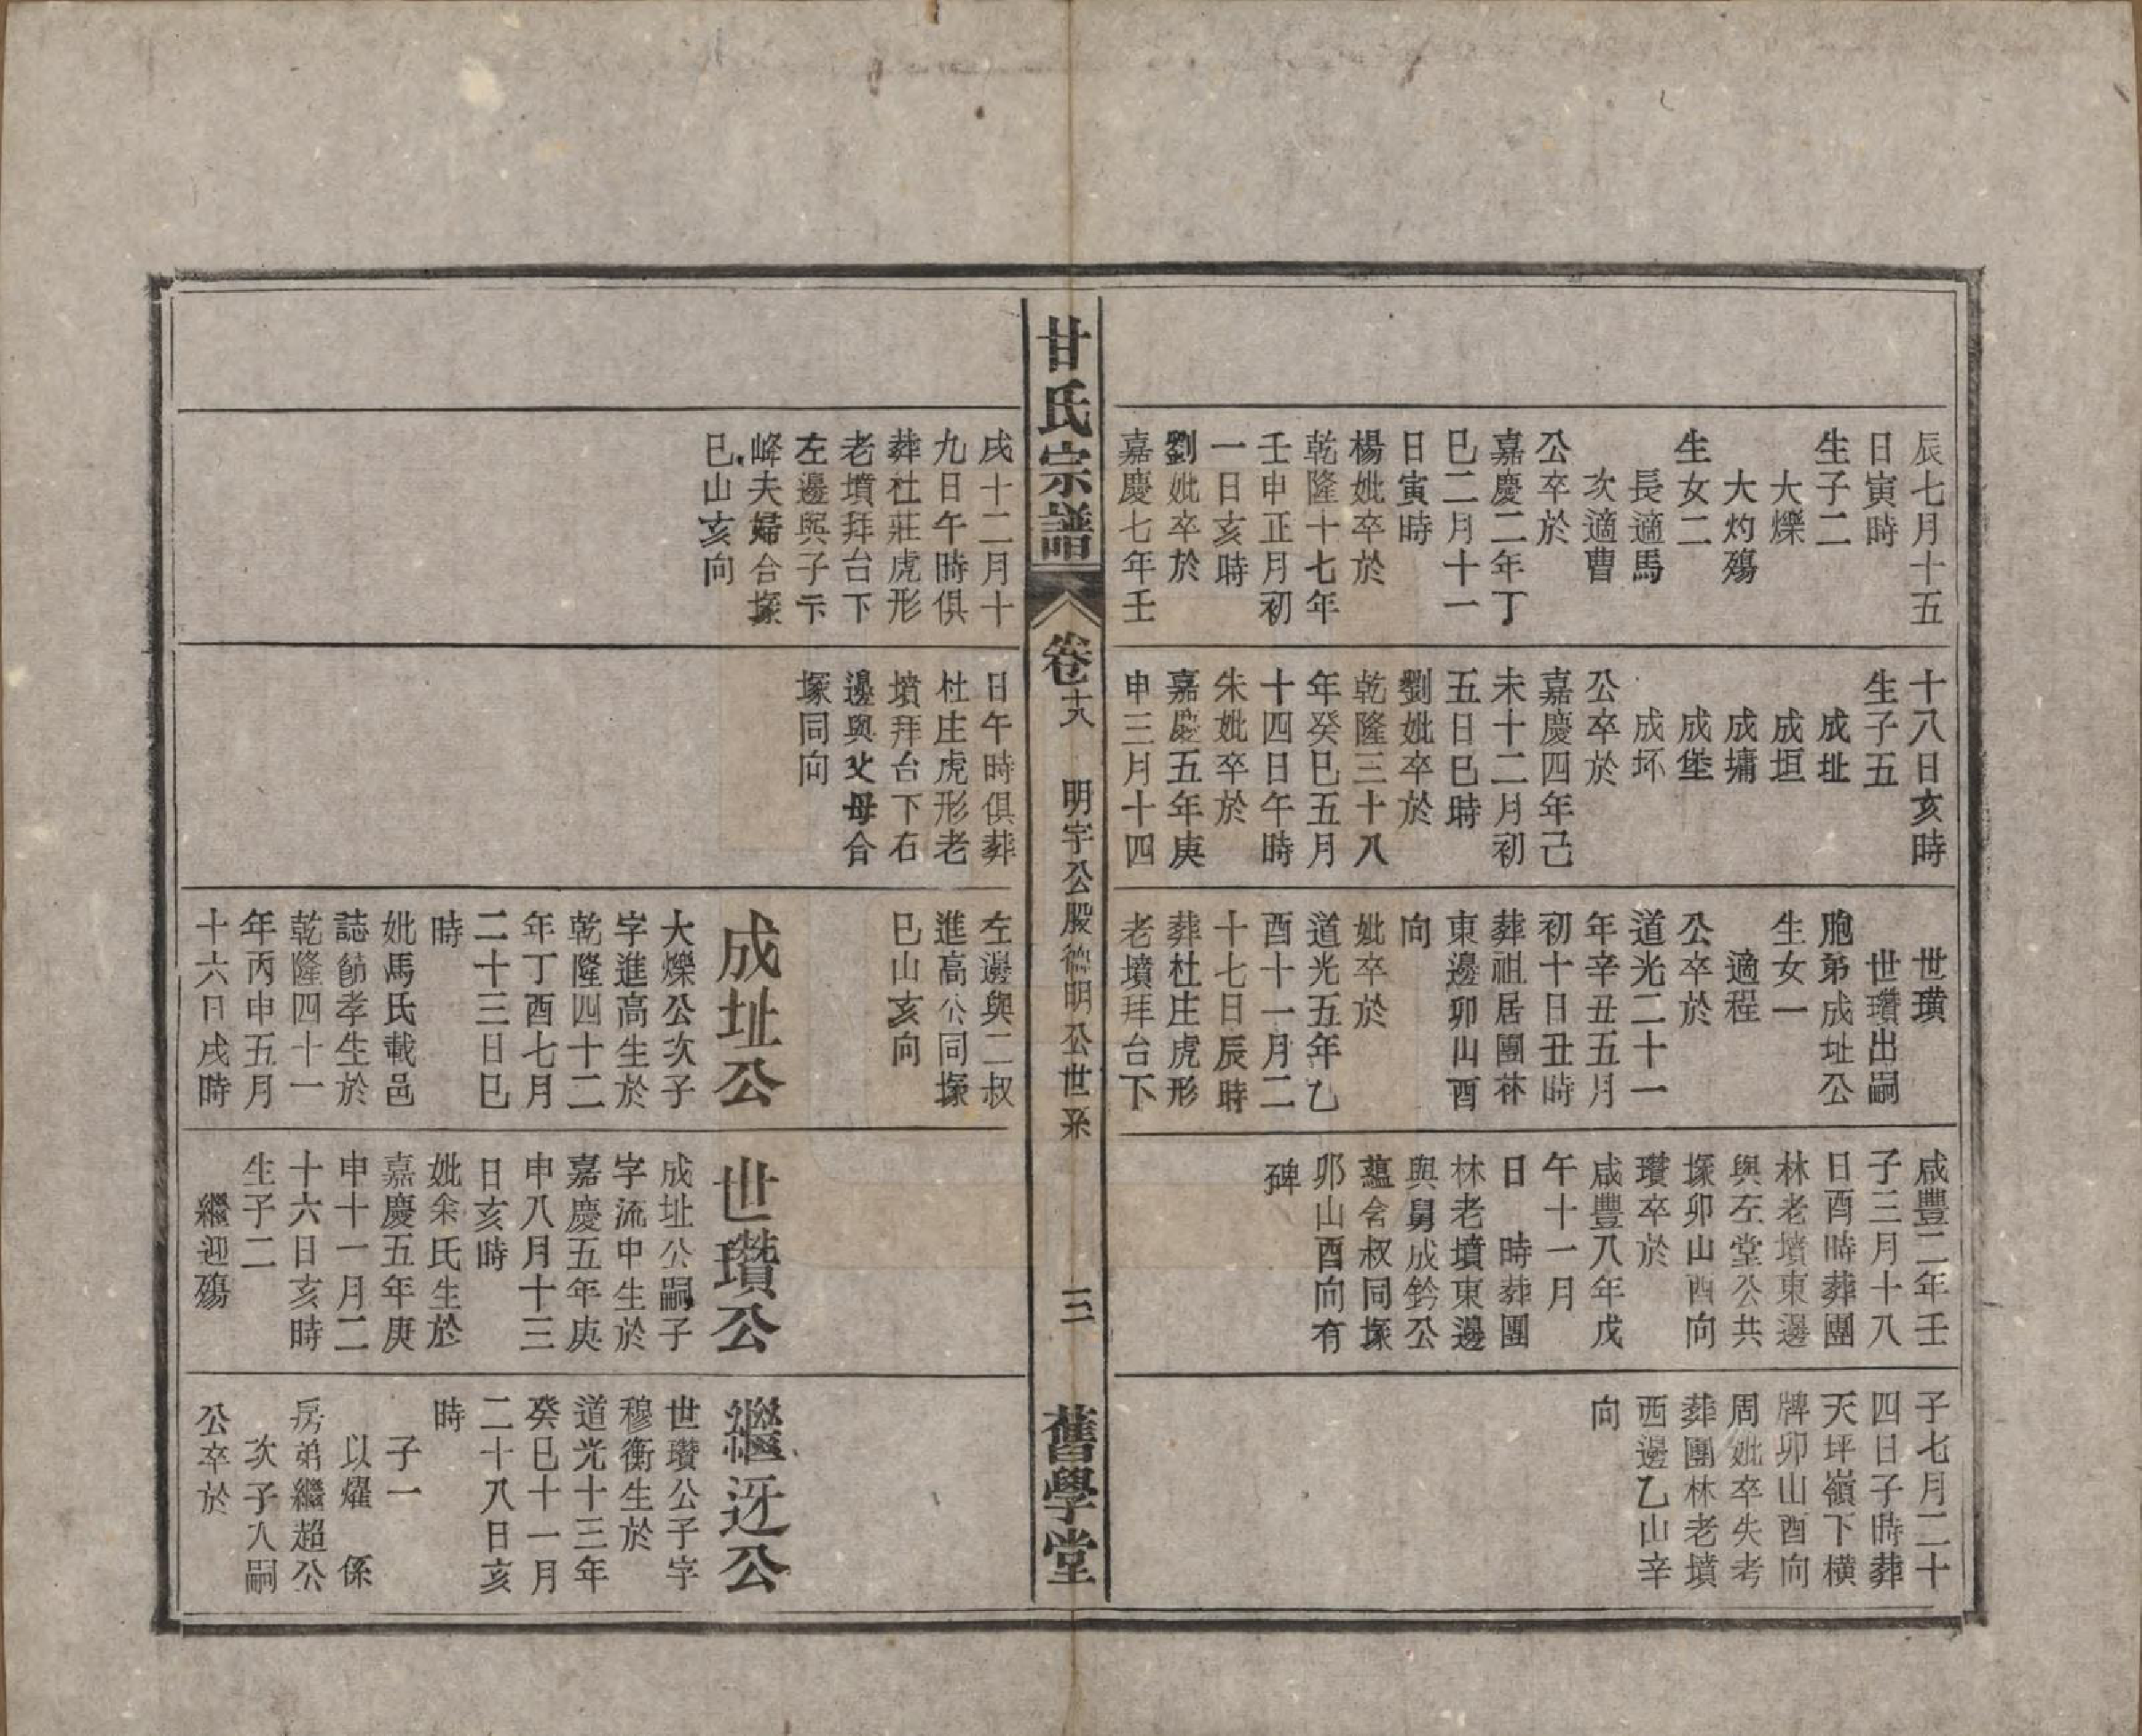 辰七月十五
日寅時
生子二
大爍
大灼殤
生女二
長適馬
次適曹
公卒於
嘉慶二年丁
巳二月十一
日寅時
楊妣卒於
乾隆十七年
壬申正月初
一日亥時
劉妣卒於
嘉慶七年壬
十八日亥時
生子五
成址
成垣
成墉
成堡
成坏
公卒於
嘉慶四年己
未十二月初
五日巳時
劉妣卒於
乾隆三十八
年癸巳五月
十四日午時
朱妣卒於
嘉慶五年庚
申三月十四
世璜
世瓚出嗣
胞弟成址公
生女一
適程
公卒於
道光二十一
年辛丑五月
初十日丑時
葬祖居團林
東邊卯山酉
向
妣卒於
道光五年乙
酉十一月二
十七日辰時
葬杜庄虎形
老墳拜台下
咸豐二年壬
子三月十八
日酉時葬團
林老墳東邊
與左堂公共
塚卯山酉向
瓚卒於
咸豐八年戊
午十一月
日　時葬團
林老墳東邊
與舅成鈐公
蘊含叔同塚
卯山酉向有
碑
子七月二十
四日子時葬
天坪嶺下橫
牌卯山酉向
周妣卒失考
葬團林老墳
西邊乙山辛
向
甘氏宗譜
卷十八
明宇公股德明公世系
三
舊學堂
戌十二月十
九日午時俱
葬杜莊虎形
老墳拜台下
左邊與子示
峰夫婦合塚
巳山亥向
日午時俱葬
杜庄虎形老
墳拜台下右
邊與父母合
塚同向
左邊與二叔
進高公同塚
巳山亥向
成址公
大爍公次子
字進高生於
乾隆四十二
年丁酉七月
二十三日巳
時
妣馬氏載邑
誌節孝生於
乾隆四十一
年丙申五月
十六日戌時
世瓚公
成址公嗣子
字流中生於
嘉慶五年庚
申八月十三
日亥時
妣余氏生於
嘉慶五年庚
申十一月二
十六日亥時
生子二
繼迎殤
繼迓公
世瓚公子字
穆衡生於
道光十三年
癸巳十一月
二十八日亥
時
子一
以燿　係
房弟繼超公
次子入嗣
公卒於